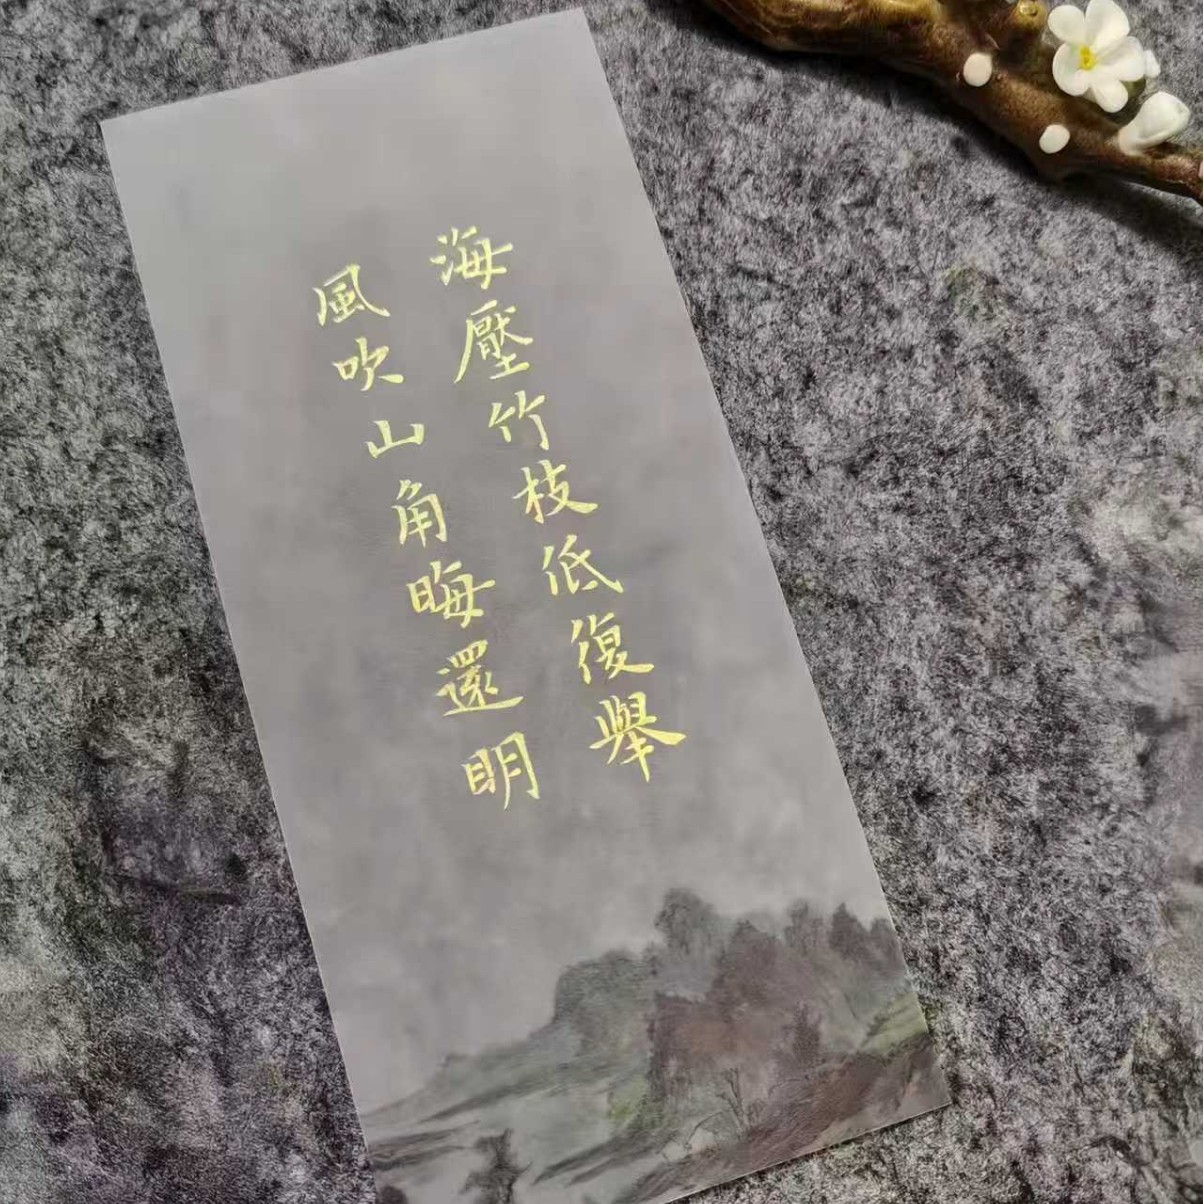 海壓竹枝低復舉
風吹山角晦還明